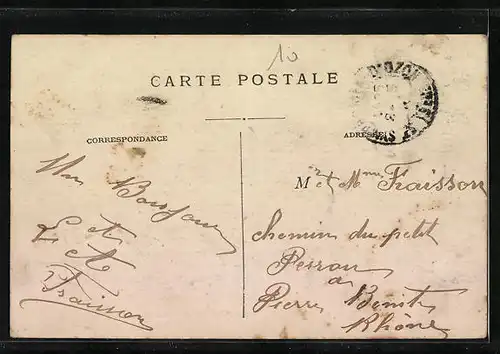 10
CARTE POSTALE
D'OZON
CORRESPONDANCE
ADRESSE
Un Bonjour
E et M
Fraisson
M r et Mme Fraisson
chemin du petit
Perron
a
Pierre Bénite
Rhône